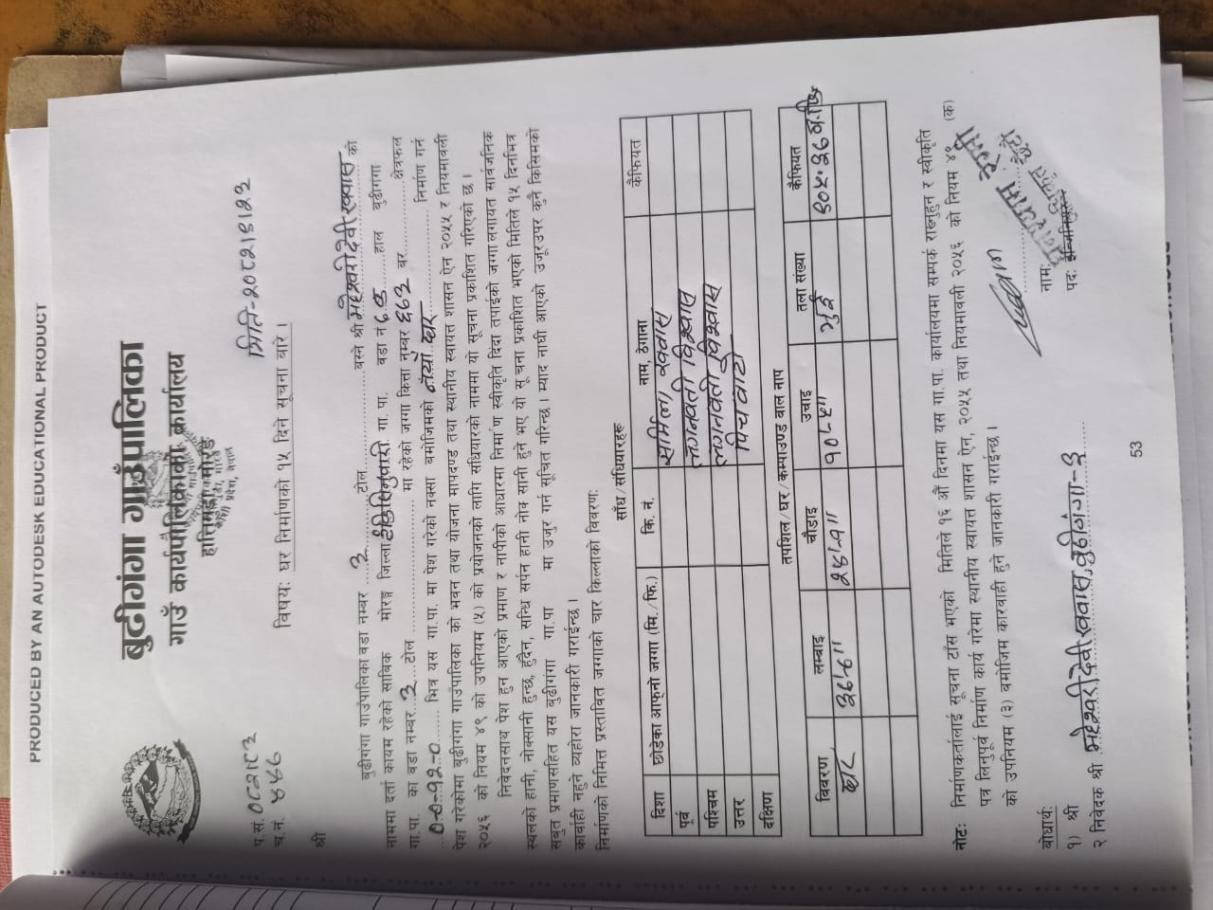 PRODUCED BY AN AUTODESK EDUCATIONAL PRODUCT
बुढीगंगा गाउँपालिका
गाउँ कार्यपालिकाको कार्यालय
हात्तिमुढा, मोरङ
प.सं. ०८२।८३
च.नं. ४४६
मिति-२०८२।९।२३
विषयः घर निर्माणको १५ दिने सूचना बारे ।
श्री
बुढीगंगा गाउँपालिका वडा नम्बर ३ टोल बस्ने श्री महेश्वरीदेवी खवास को
नाममा दर्ता कायम रहेको साबिक मोरङ्ग जिल्ला गा. पा. वडा नं हाल बुढीगंगा
गा.पा. का वडा नम्बर ३ टोल मा रहेको जग्गा कित्ता नम्बर ६६३ बर. क्षेत्रफल
०-०-१२-० भित्र यस गा.पा. मा पेश गरेको नक्सा बमोजिमको घर निर्माण गर्न
पेश गरेकोमा बुढीगंगा गाउँपालिका को भवन तथा योजना मापदण्ड तथा स्थानीय स्वायत्त शासन ऐन २०५५ र नियमावली
२०५६ को नियम ४९ को उपनियम (५) को प्रयोजनको लागि संधियारको नाममा यो सूचना प्रकाशित गरिएको छ ।
निवेदनसाथ पेश हुन आएको प्रमाण र नापीको आधारमा निर्माण स्वीकृति दिदा तपाईको जग्गा लगायत सार्वजनिक
स्थलको हानी, नोक्सानी हुन्छ, हुदैन, सन्धि सर्पन हानी नोक्सानी हुने भए यो सूचना प्रकाशित भएको मितिले १५ दिनभित्र
सबुत प्रमाणसहित यस बुढीगंगा गा.पा मा उजुर गर्न सूचित गरिन्छ । म्याद नाघी आएको उजुरउपर कुनै किसिमको
कार्वाही नहुने व्यहोरा जानकारी गराईन्छ ।
निर्माणको निमित्त प्रस्तावित जग्गाको चार किल्लाको विवरणः
साँध/संधियारहरू
दिशा छोडेका आफ्नो जग्गा (मि./फि.) कि. नं. नाम, ठेगाना कैफियत
पूर्व सर्मिला खवास
पश्चिम लगनवती विश्वास
उत्तर लगनवती विश्वास
दक्षिण पिच बाटो
तपशिल/घर/कम्पाउण्ड वाल नाप
विवरण लम्बाइ चौडाइ उचाइ तला संख्या कैफियत
घर ३६'-६" २४'-१" १०'-५" भुई ९०५.३६ व.फि
नोटः निर्माणकर्तालाई सूचना टाँस भएको मितिले १६ औं दिनमा यस गा.पा. कार्यालयमा सम्पर्क राख्नुहुन र स्वीकृति
पत्र लिनुपूर्व निर्माण कार्य गरेमा स्थानीय स्वायत्त शासन ऐन, २०५५ तथा नियमावली २०५६ को नियम ४९ (क)
को उपनियम (३) बमोजिम कारबाही हुने जानकारी गराईन्छ ।
नाम:
पद:
बोधार्थः
१) श्री
२ निवेदक श्री महेश्वरीदेवी खवास, बुढीगंगा-३
53